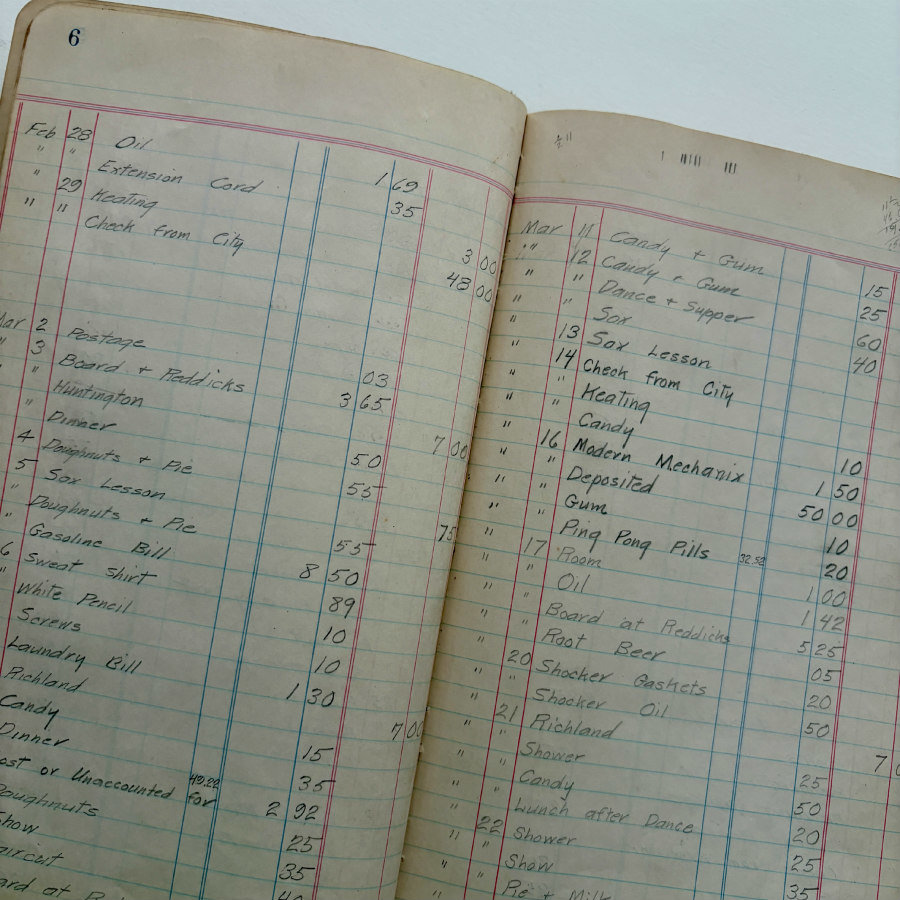 6
Feb 28 Oil 1 69
" " Extension Cord 35
" 29 Keating 3 00
" " Check from City 48 00
Mar 2 Postage 03
" 3 Board + Reddicks 3 65
" " Huntington 7 00
" Dinner 50
4 Doughnuts + Pie 55
5 Sox Lesson 75
" Doughnuts + Pie 55
" Gasoline Bill 8 50
6 Sweat Shirt 89
" White Pencil 10
Screws 10
Laundry Bill 1 30
Richland 7 00
Candy 15
Dinner 35
ost or Unaccounted for 49.22 2 92
Doughnuts 25
Show 35
aircut 40
ard at
Mar 11 Candy + Gum 15
" 12 Candy + Gum 25
" " Dance + Supper 60
" " Sox 40
" 13 Sox Lesson
" 14 Check from City
" " Keating
" " Candy 10
" 16 Modern Mechanix 1 50
" " Deposited 50 00
" " Gum 10
" " Ping Pong Pills 32.52 20
" 17 Room 1 00
" " Oil 1 42
" " Board at Reddicks 5 25
" " Root Beer 05
" 20 Shocker Gaskets 20
" " Shocker Oil 50
" 21 Richland 7 0
" " Shower 25
" " Candy 50
" " Lunch after Dance 20
" 22 Shower 25
" " Show 35
" " Pie + Milk